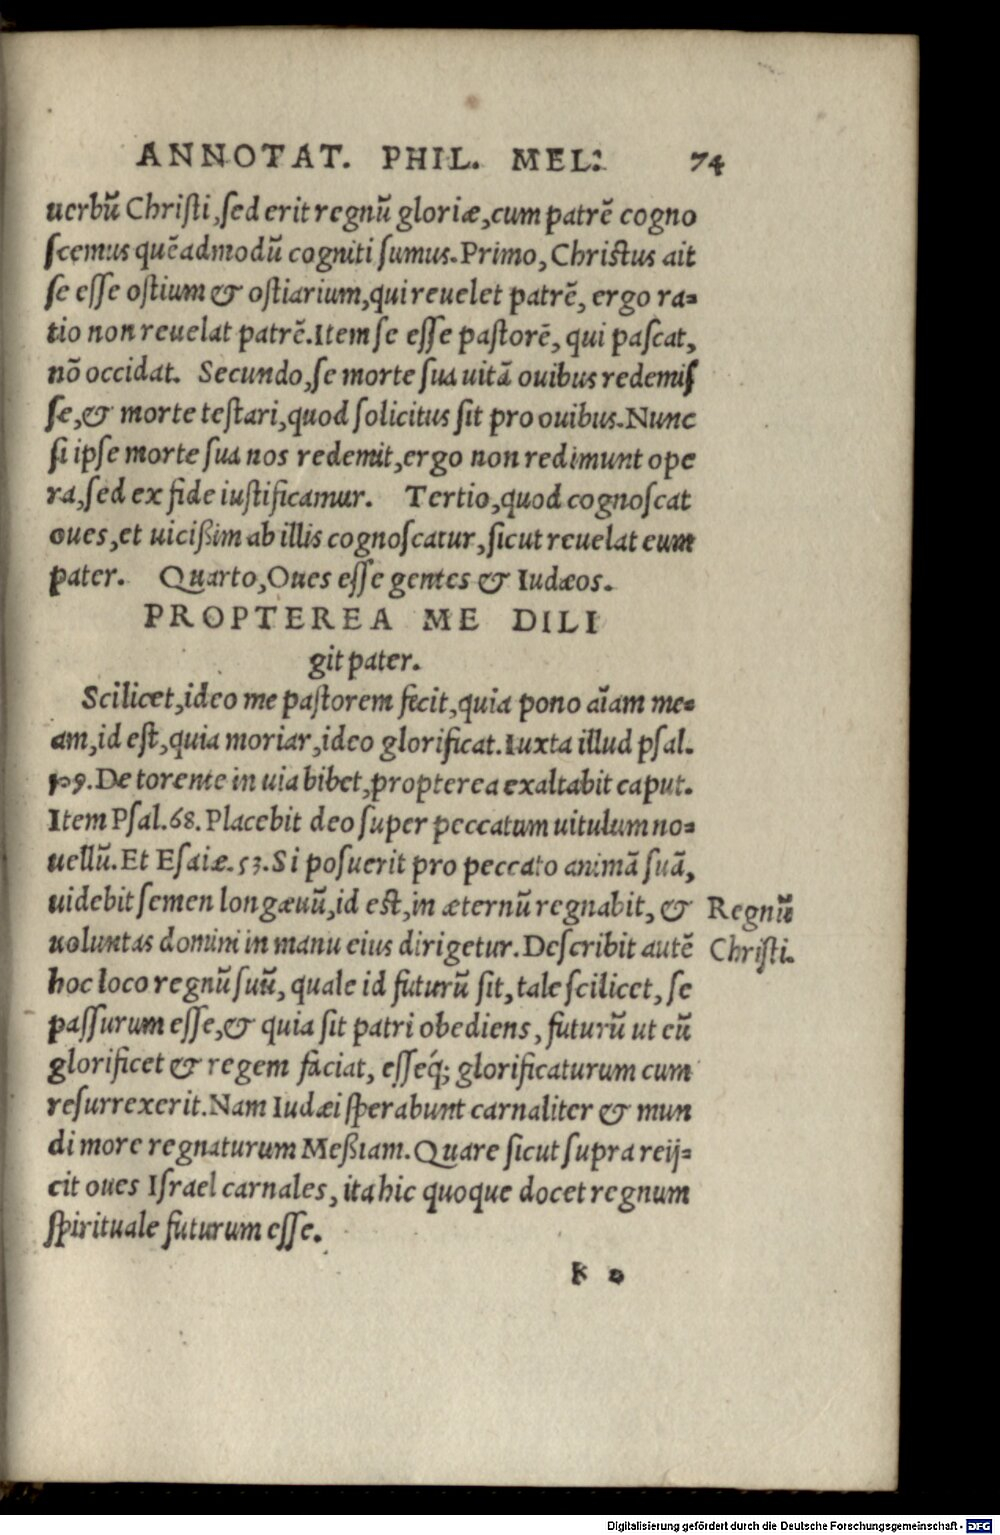 ANNOTAT. PHIL. MEL: 74
uerbũ Chriſti, ſed erit regnũ gloriæ, cum patrẽ cogno
ſcemus quẽadmodũ cogniti ſumus. Primo, Chriſtus ait
ſe eſſe oſtium & oſtiarium, qui reuelet patrẽ, ergo ra⸗
tio non reuelat patrẽ. Item ſe eſſe paſtorẽ, qui paſcat,
nõ occidat. Secundo, ſe morte ſua uitã ouibus redemiſ
ſe, & morte teſtari, quod ſolicitus ſit pro ouibus. Nunc
ſi ipſe morte ſua nos redemit, ergo non redimunt ope
ra, ſed ex fide iuſtificamur. Tertio, quod cognoſcat
oues, et uicißim ab illis cognoſcatur, ſicut reuelat eum
pater. Quarto, Oues eſſe gentes & Iudæos.
PROPTEREA ME DILI
git pater.
Scilicet, ideo me paſtorem fecit, quia pono aĩam me⸗
am, id eſt, quia moriar, ideo glorificat. Iuxta illud pſal.
109. De torente in uia bibet, propterea exaltabit caput.
Item Pſal. 68. Placebit deo ſuper peccatum uitulum no⸗
uellũ. Et Eſaiæ. 53. Si poſuerit pro peccato animã ſuã,
uidebit ſemen longæuũ, id eſt, in æternũ regnabit, &
uoluntas domini in manu eius dirigetur. Deſcribit autẽ
hoc loco regnũ ſuũ, quale id futurũ ſit, tale ſcilicet, ſe
paſſurum eſſe, & quia ſit patri obediens, futurũ ut eũ
glorificet & regem faciat, eſſeq́; glorificaturum cum
reſurrexerit. Nam Iudæi ſperabunt carnaliter & mun
di more regnaturum Meßiam. Quare ſicut ſupra reij⸗
cit oues Iſrael carnales, ita hic quoque docet regnum
ſpirituale futurum eſſe.
Regnũ
Chriſti.
Digitalisierung gefördert durch die Deutsche Forschungsgemeinschaft - DFG